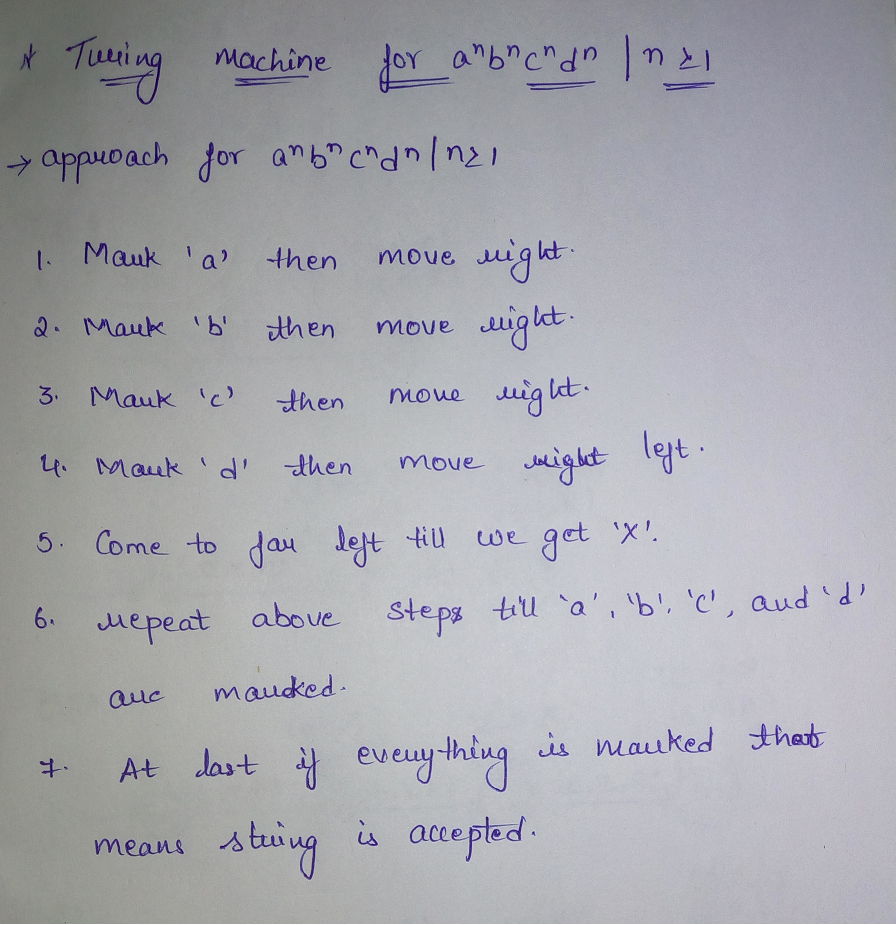 * Turing machine for aⁿbⁿcⁿdⁿ | n ≥1
→ approach for aⁿbⁿcⁿdⁿ | n≥1
1. Mark 'a' then move right.
2. Mark 'b' then move right.
3. Mark 'c' then move right.
4. Mark 'd' then move right left.
5. Come to far left till we get 'X'.
6. repeat above steps till 'a', 'b', 'c', and 'd'
are marked.
7. At last if everything is marked that
means string is accepted.